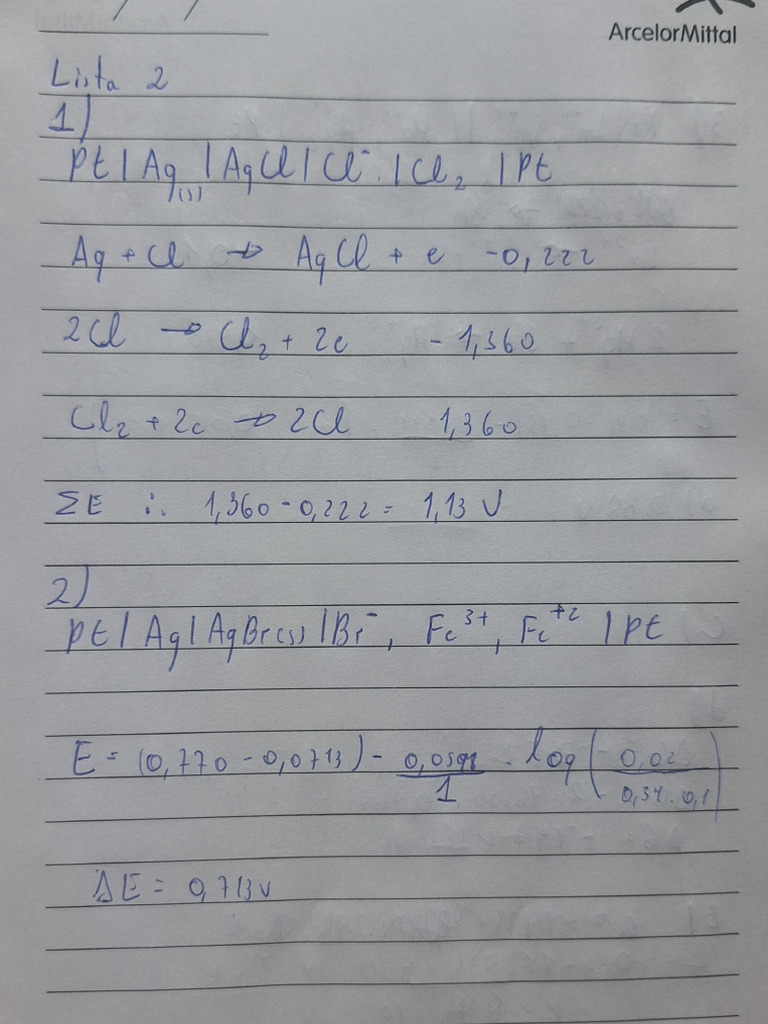 ArcelorMittal
Lista 2
1)
Pt | Ag(s) | AgCl | Cl⁻ | Cl₂ | Pt
Ag + Cl → AgCl + e -0,222
2Cl → Cl₂ + 2e - 1,360
Cl₂ + 2e → 2Cl 1,360
ΣE ∴ 1,360 - 0,222 = 1,13 V
2)
Pt | Ag | AgBr(s) | Br⁻, Fe³⁺, Fe⁺² | Pt
E = (0,770 - 0,0713) - 0,0591/1 . log (0,02/0,54 . 0,1)
ΔE = 0,713v